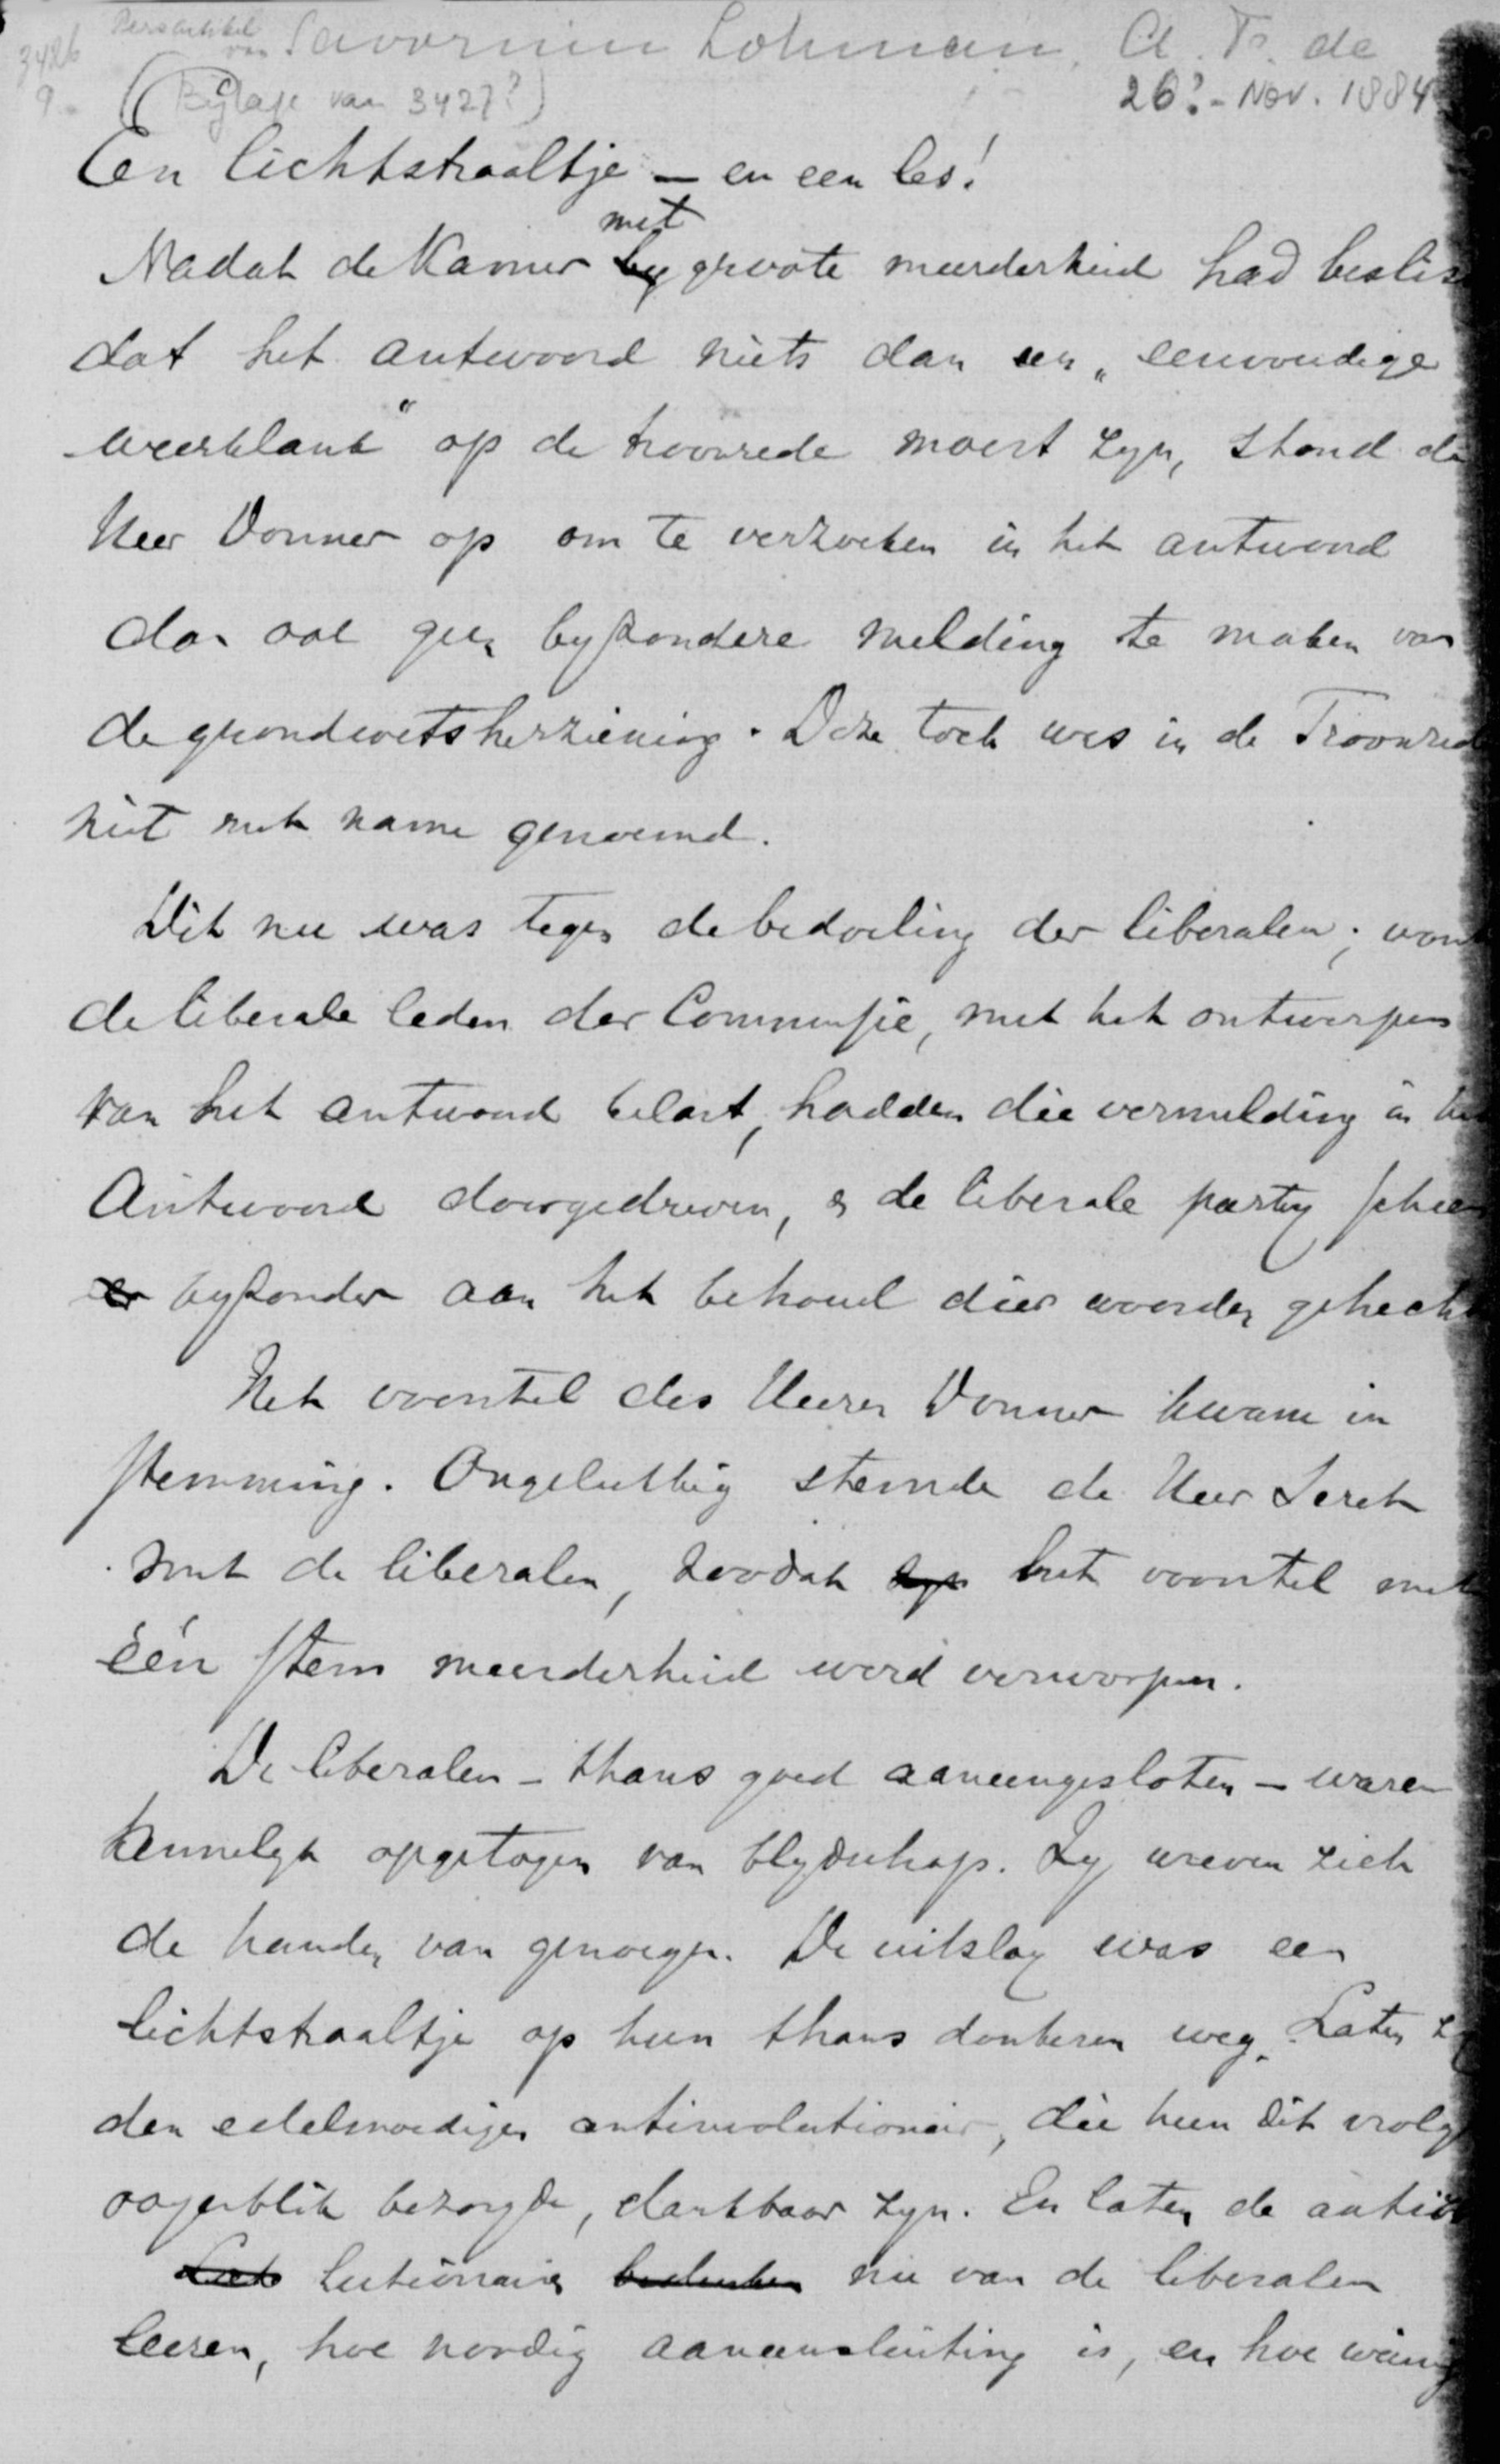 Persartikel van Savornin Lohman, A. F. de
3426
9.
(Bijlage van 3427?)
26?- Nov. 1884
Een lichtstraaltje – en een les!
met
Nadat de Kamer by groote meerderheid had beslis
dat het antwoord niets dan een „eenvoudige
weerklank" op de troonrede moest zyn, stond de
Heer Donner op om te verzoeken in het antwoord
dan ook geen byzondere melding te maken van
de grondwetsherziening. Deze toch was in de Troonred
niet met name genoemd.
Dit nu was tegen de bedoeling der liberalen; want
de liberale leden der Commissie, met het ontwerpen
van het antwoord belast, hadden die vermelding in het
Antwoord doorgedreven, & de liberale party scheen
er byzonder aan het behoud dier woorden gehecht
Het voorstel des Heeren Donner kwam in
stemming. Ongelukkig stemde de Heer Seret
met de liberalen, zoodat het voorstel met
één stem meerderheid werd verworpen.
De liberalen – thans goed aaneengesloten – waren
kennelyk opgetogen van blydschap. Zy wreven zich
de handen van genoegen. De uitslag was een
lichtstraaltje op hun thans donkeren weg. Laten zy
den edelmoedigen antirevolutionair, die hun dit vrolyk
oogenblik bezorgde, dankbaar zyn. En laten de antire
lutionairen bedenken nu van de liberalen
leeren, hoe noodig aaneensluiting is, en hoe weinig